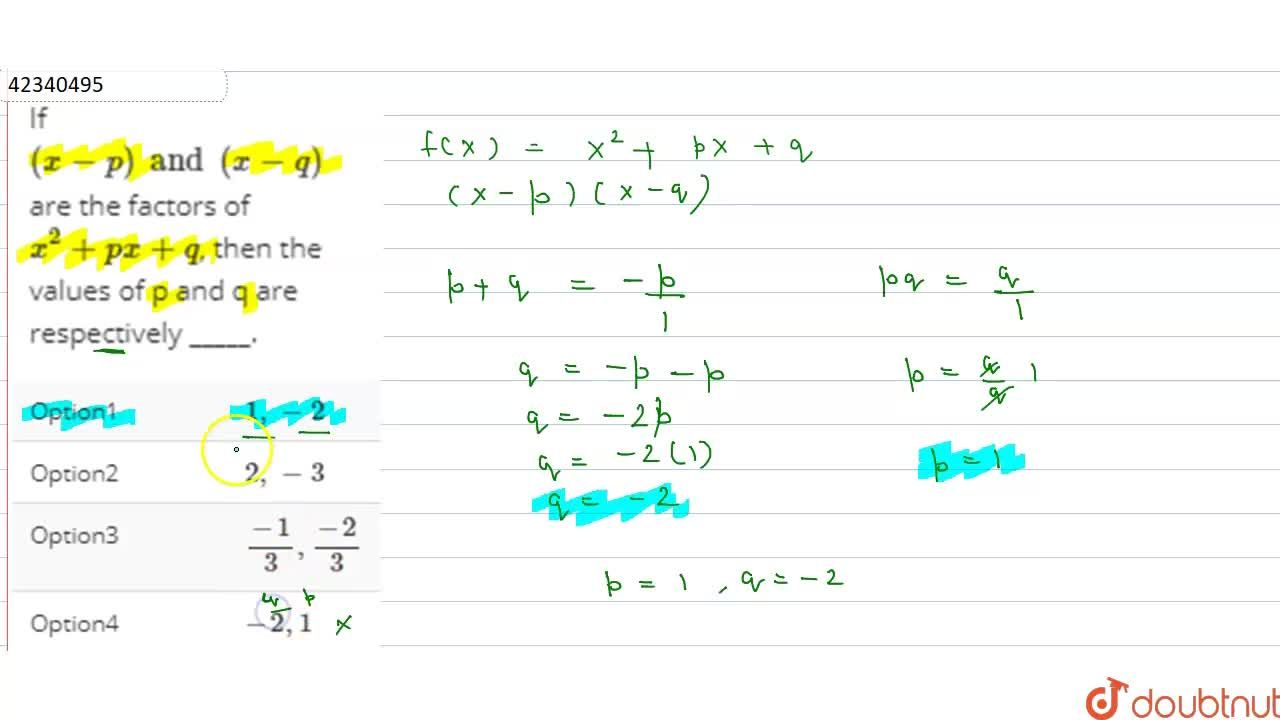 42340495
If
(x − p) and (x − q)
are the factors of
x² + px + q, then the
values of p and q are
respectively _____.
Option1 1, − 2
Option2 2, − 3
Option3 −1/3, −2/3
q p
Option4 −2, 1 ×
f(x) = x² + px + q
(x − p)(x − q)
p + q = −p/1
q = −p − p
q = −2p
q = −2(1)
q = −2
pq = q/1
p = q/q 1
p = 1
p = 1, q = −2
doubtnut